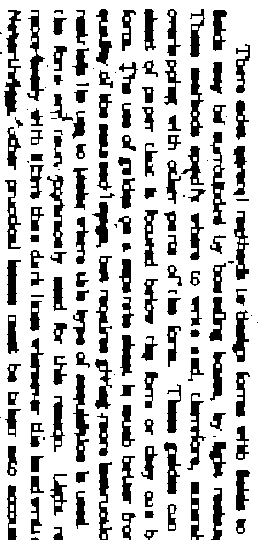 There exist several methods to design forms with fields to
fields may be surrounded by bounding boxes, by light rectang
These methods specify where to write and, therefore, minimi
overlapping with other parts of the form. These guides can
sheet of paper that is located below the form or they can b
form. The use of guides on a separate sheet is much better fro
quality of the scanned image, but requires giving more instructio
restricts its use to tasks where this type of acquisition is used.
the form are more commonly used for this reason. Light re
more easily with filters than dark lines whenever the handwritt
Nevertheless, other practical issues must be taken into accoun